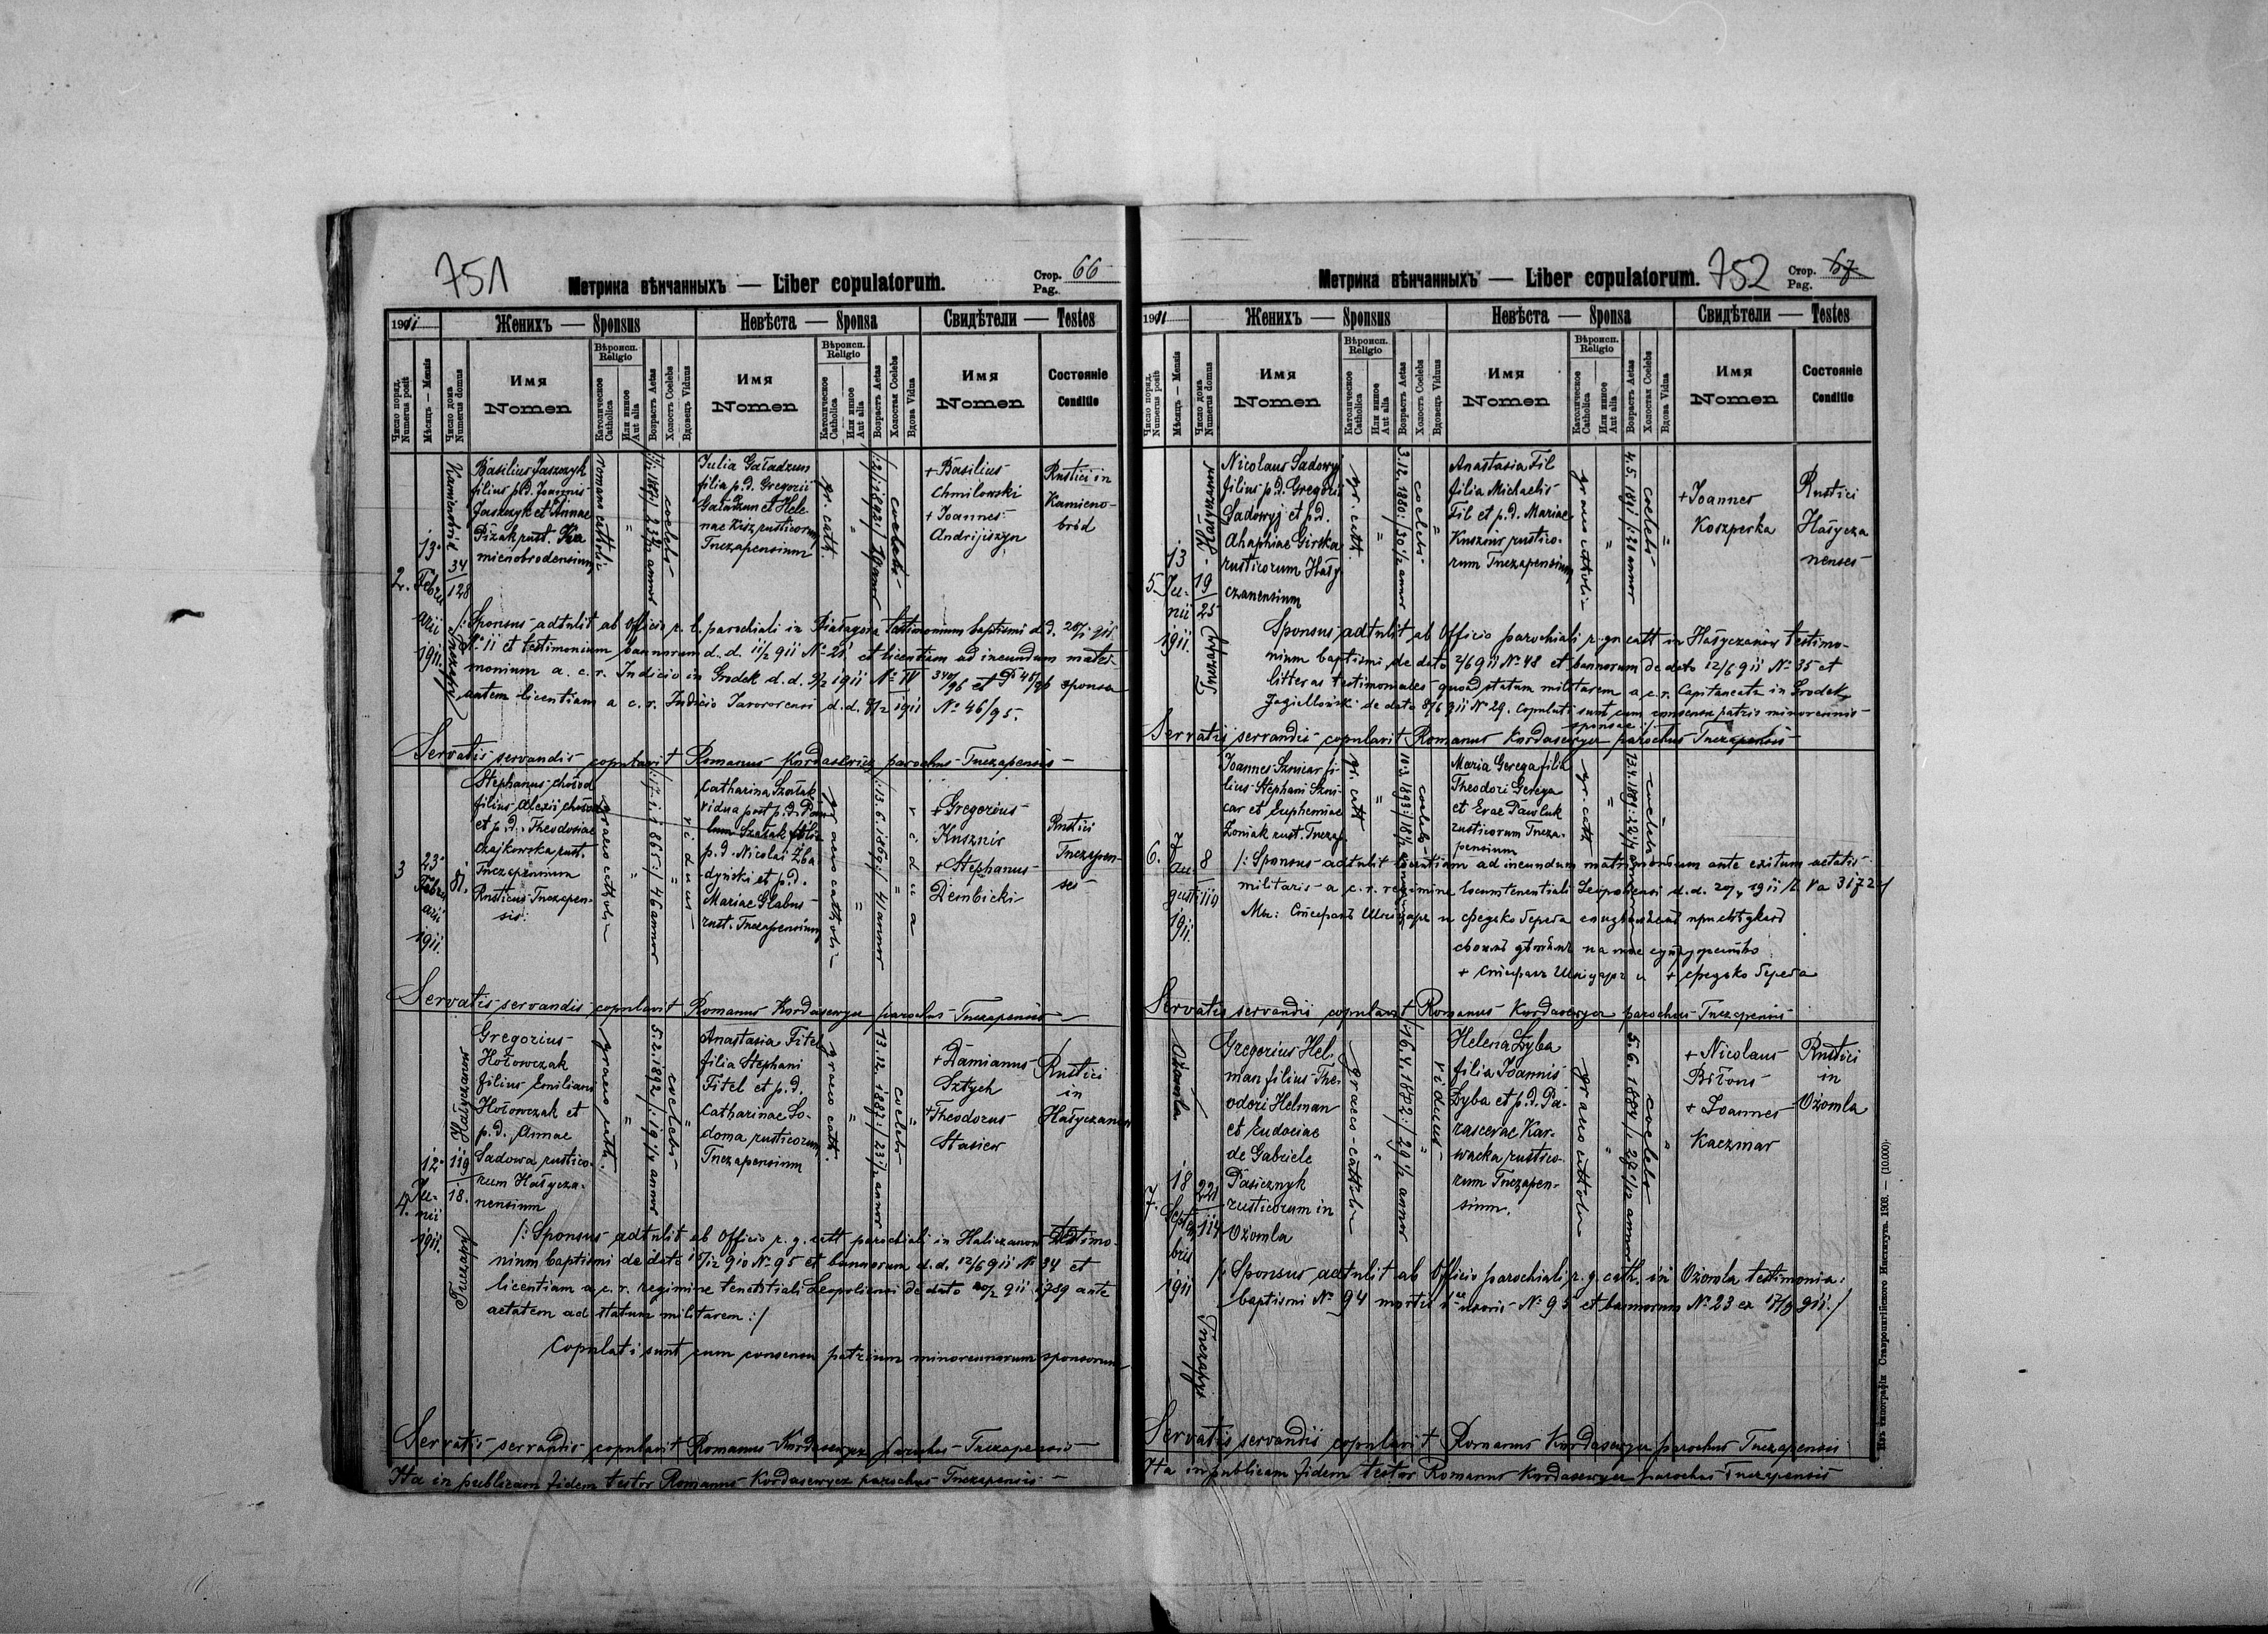 751
Метрика вѣнчанныхъ — Liber copulatorum.
Стор. Pag. 66
1911
Женихъ — Sponsus
Невѣста — Sponsa
Свидѣтели — Testes
Число поряд. Numerus posit
Мѣсяцъ — Mensis
Число дома Numerus domus
Имя Nomen
Вѣроисп. Religio
Католическое Catholica
Или иное Aut alia
Возрастъ Aetas
Холостъ Coelebs
Вдовецъ Viduus
Имя Nomen
Вѣроисп. Religio
Католическое Catholica
Или иное Aut alia
Возрастъ Aetas
Холостая Coelebs
Вдова Vidua
Имя Nomen
Состояніе Conditio
2.
13. Febru
arii
1911.
34
128
Basilius Jaszczyk
filius p.d. Joannis
Jaszczyk et Annae
Pizak rust. Ka
mienobrodensium
romano cattoli
coelebs
Julia Gaładzun
filia p.d. Gregorii
Gaładzun et Hele-
nae Kisz rusticorum
Tuczapensium
gr. catt.
coelebs
+ Basilius
Chmilowski
+ Joannes
Andrijiszyn
Rustici in
Kamieno-
bród
/: Sponsus adtulit ab Officio r. l. parochiali in Białagóra testimonium baptismi d.d. 28/1 911
No 11 et testimonium bannorum d. d. 11/2 911 No 21 et licentiam ad ineundum matri-
monium a. c. r. Iudicio in Grodek d.d. 9/2 1911 No IV 340/96 et P 45/96 sponsa
autem licentiam a c. r. Iudicio Javoroviensi d.d. 8/2 1911 No 46/95.
Servatis servandis copulavit Romanus Kordasewicz parochus Tuczapensis
3
23. Febru
arii
1911.
81.
Stephanus
filius Alexii
et p.d. Theodosiae
Czajkowska rust.
Tuczapensium
Rusticus Tuczapen-
sis:
graeco cattoli-
46 annor
viduus
Catharina Szałak
vidua post p.d. Pau
lum Szałak filia
p.d. Nicolai Zba
dyński et p.d.
Mariae Glabus
rust. Tuczapensium
graeco cattoli-
41 annor
vidua
+ Gregorius
Kusznir
+ Stephanus
Dembicki
Rustici
Tuczapen-
ses
Servatis servandis copulavit Romanus Kordasewycz parochus Tuczapensis
4.
12. Ju-
nii
1911.
Hałyczanow
119
18.
Tuczapy
Gregorius
Hołowczak
filius Emiliani
Hołowczak et
p.d. Annae
Sadowa rustico-
rum Hałycza-
nensium
graeco catt.
5.2.1892 /: 19 1/4 annor
coelebs
Anastasia Fitel
filia Stephani
Fitel et p.d.
Catharinae So-
doma rusticorum
Tuczapensium
graeco catt.
13.12.1887 /: 23 1/2 annor
coelebs
+ Damianus
Sztych
+ Theodorus
Stasiew
Rustici
in
Hałyczanow
/: Sponsus adtulit ab Officio r. g. catt parochiali in Haliczanow testimo-
nium baptismi de dato 15/12 910 No 95 et bannorum d.d. 12/6 911 No 34 et
licentiam a c. r. regimine Leopoliensi de dato 20/2 911 1789 ante
aetatem ad statum militarem :/
Copulati sunt cum consensu patrium minorennorum sponsorum
Servatis servandis copulavit Romanus Kordasewycz parochus Tuczapensis
Ita in publicam fidem testor Romanus Kordasewycz parochus Tuczapensis
752
Метрика вѣнчанныхъ — Liber copulatorum.
Стор. Pag. 67
1911
Женихъ — Sponsus
Невѣста — Sponsa
Свидѣтели — Testes
Число поряд. Numerus posit
Мѣсяцъ — Mensis
Число дома Numerus domus
Имя Nomen
Вѣроисп. Religio
Католическое Catholica
Или иное Aut alia
Возрастъ Aetas
Холостъ Coelebs
Вдовецъ Viduus
Имя Nomen
Вѣроисп. Religio
Католическое Catholica
Или иное Aut alia
Возрастъ Aetas
Холостая Coelebs
Вдова Vidua
Имя Nomen
Состояніе Conditio
5.
13 Ju-
nii
1911.
Hałyczanow
19
25
Tuczapy
Nicolaus Sadowyj
filius p.d. Gregorii
Sadowyj et p.d.
Ahaphiae Girska
rusticorum Hały
czanensium
gr. catt.
3.12.1880 /: 30 1/2 annor
coelebs
Anastasia Fil
filia Michaelis
Fil et p.d. Mariae
Kuszonr rustico-
rum Tuczapensium
graeco cattoli-
4.5.1891 /: 20 annor
coelebs
+ Joannes
Koszperka
Rustici
Hałycza
nenses
Sponsus adtulit ab Officio parochiali r. gr catt in Hałyczanow testimo-
nium baptismi de dato 2/6 911 No 48 et bannorum de dato 12/6 911 No 35 et
litteras testimoniales quoad statum militarem a c.r. Capitaneatu in Grodek
Jagielloński de dato 8/6 911 No 29. Copulati sunt cum consensu patris minorennis
sponsae :/
Servatis servandis copulavit Romanus Kordasewycz parochus Tuczapensis
6.
7 Au-
gusti
1911.
8
119
Joannes Sznicar fi-
lius Stephani Szni-
car et Euphemiae
Zoniak rust. Tuczap.
gr. catt
coelebs
Maria Gerega filia
Theodori Gerega
et Evae Pawluk
rusticorum Tucza-
pensium
gr. catt
coelebs
/: Sponsus adtulit licentiam ad ineundum matrimonium ante exitum aetatis
militaris a c. r. regimine locumtenentiali Leopoliensi d.d. 1911 L. Va 3172 :/
Мы: Стефанъ Шницаръ и Федько Ґереґа
своимъ дѣтямъ на тое супружество
+ Стефанъ Шницаръ и + Федько Ґереґа
Servatis servandis copulavit Romanus Kordasewycz parochus Tuczapensis
7.
18 Septem
bris
1911
Ożomla
221
114
Tuczapy
Gregorius Hel
man filius The-
odori Helman
et Eudociae
de Gabriele
Pasicznyk
rusticorum in
Ożomla
graeco-cattoli-
viduus
Helena Dyba
filia Joannis
Dyba et p.d. Pa-
rascevae Kar-
wacka rustico-
rum Tuczapen-
sium.
graeco cattoli-
5.6.1884 /: 27 1/2 annor
coelebs
+ Nicolaus
Biłous
+ Joannes
Kaczmar
Rustici
in
Ożomla
/: Sponsus adtulit ab Officio parochiali r. g. cath. in Ożomla testimonia:
baptismi No 94 mortis 1ae uxoris No 95 et bannorum No 23 ex 17/9 911. /
Servatis servandis copulavit Romanus Kordasewycz parochus Tuczapensis
Ita in publicam fidem testor Romanus Kordasewycz parochus Tuczapensis
Изъ типографіи Ставропигійского Института. 1908. — (10.000)